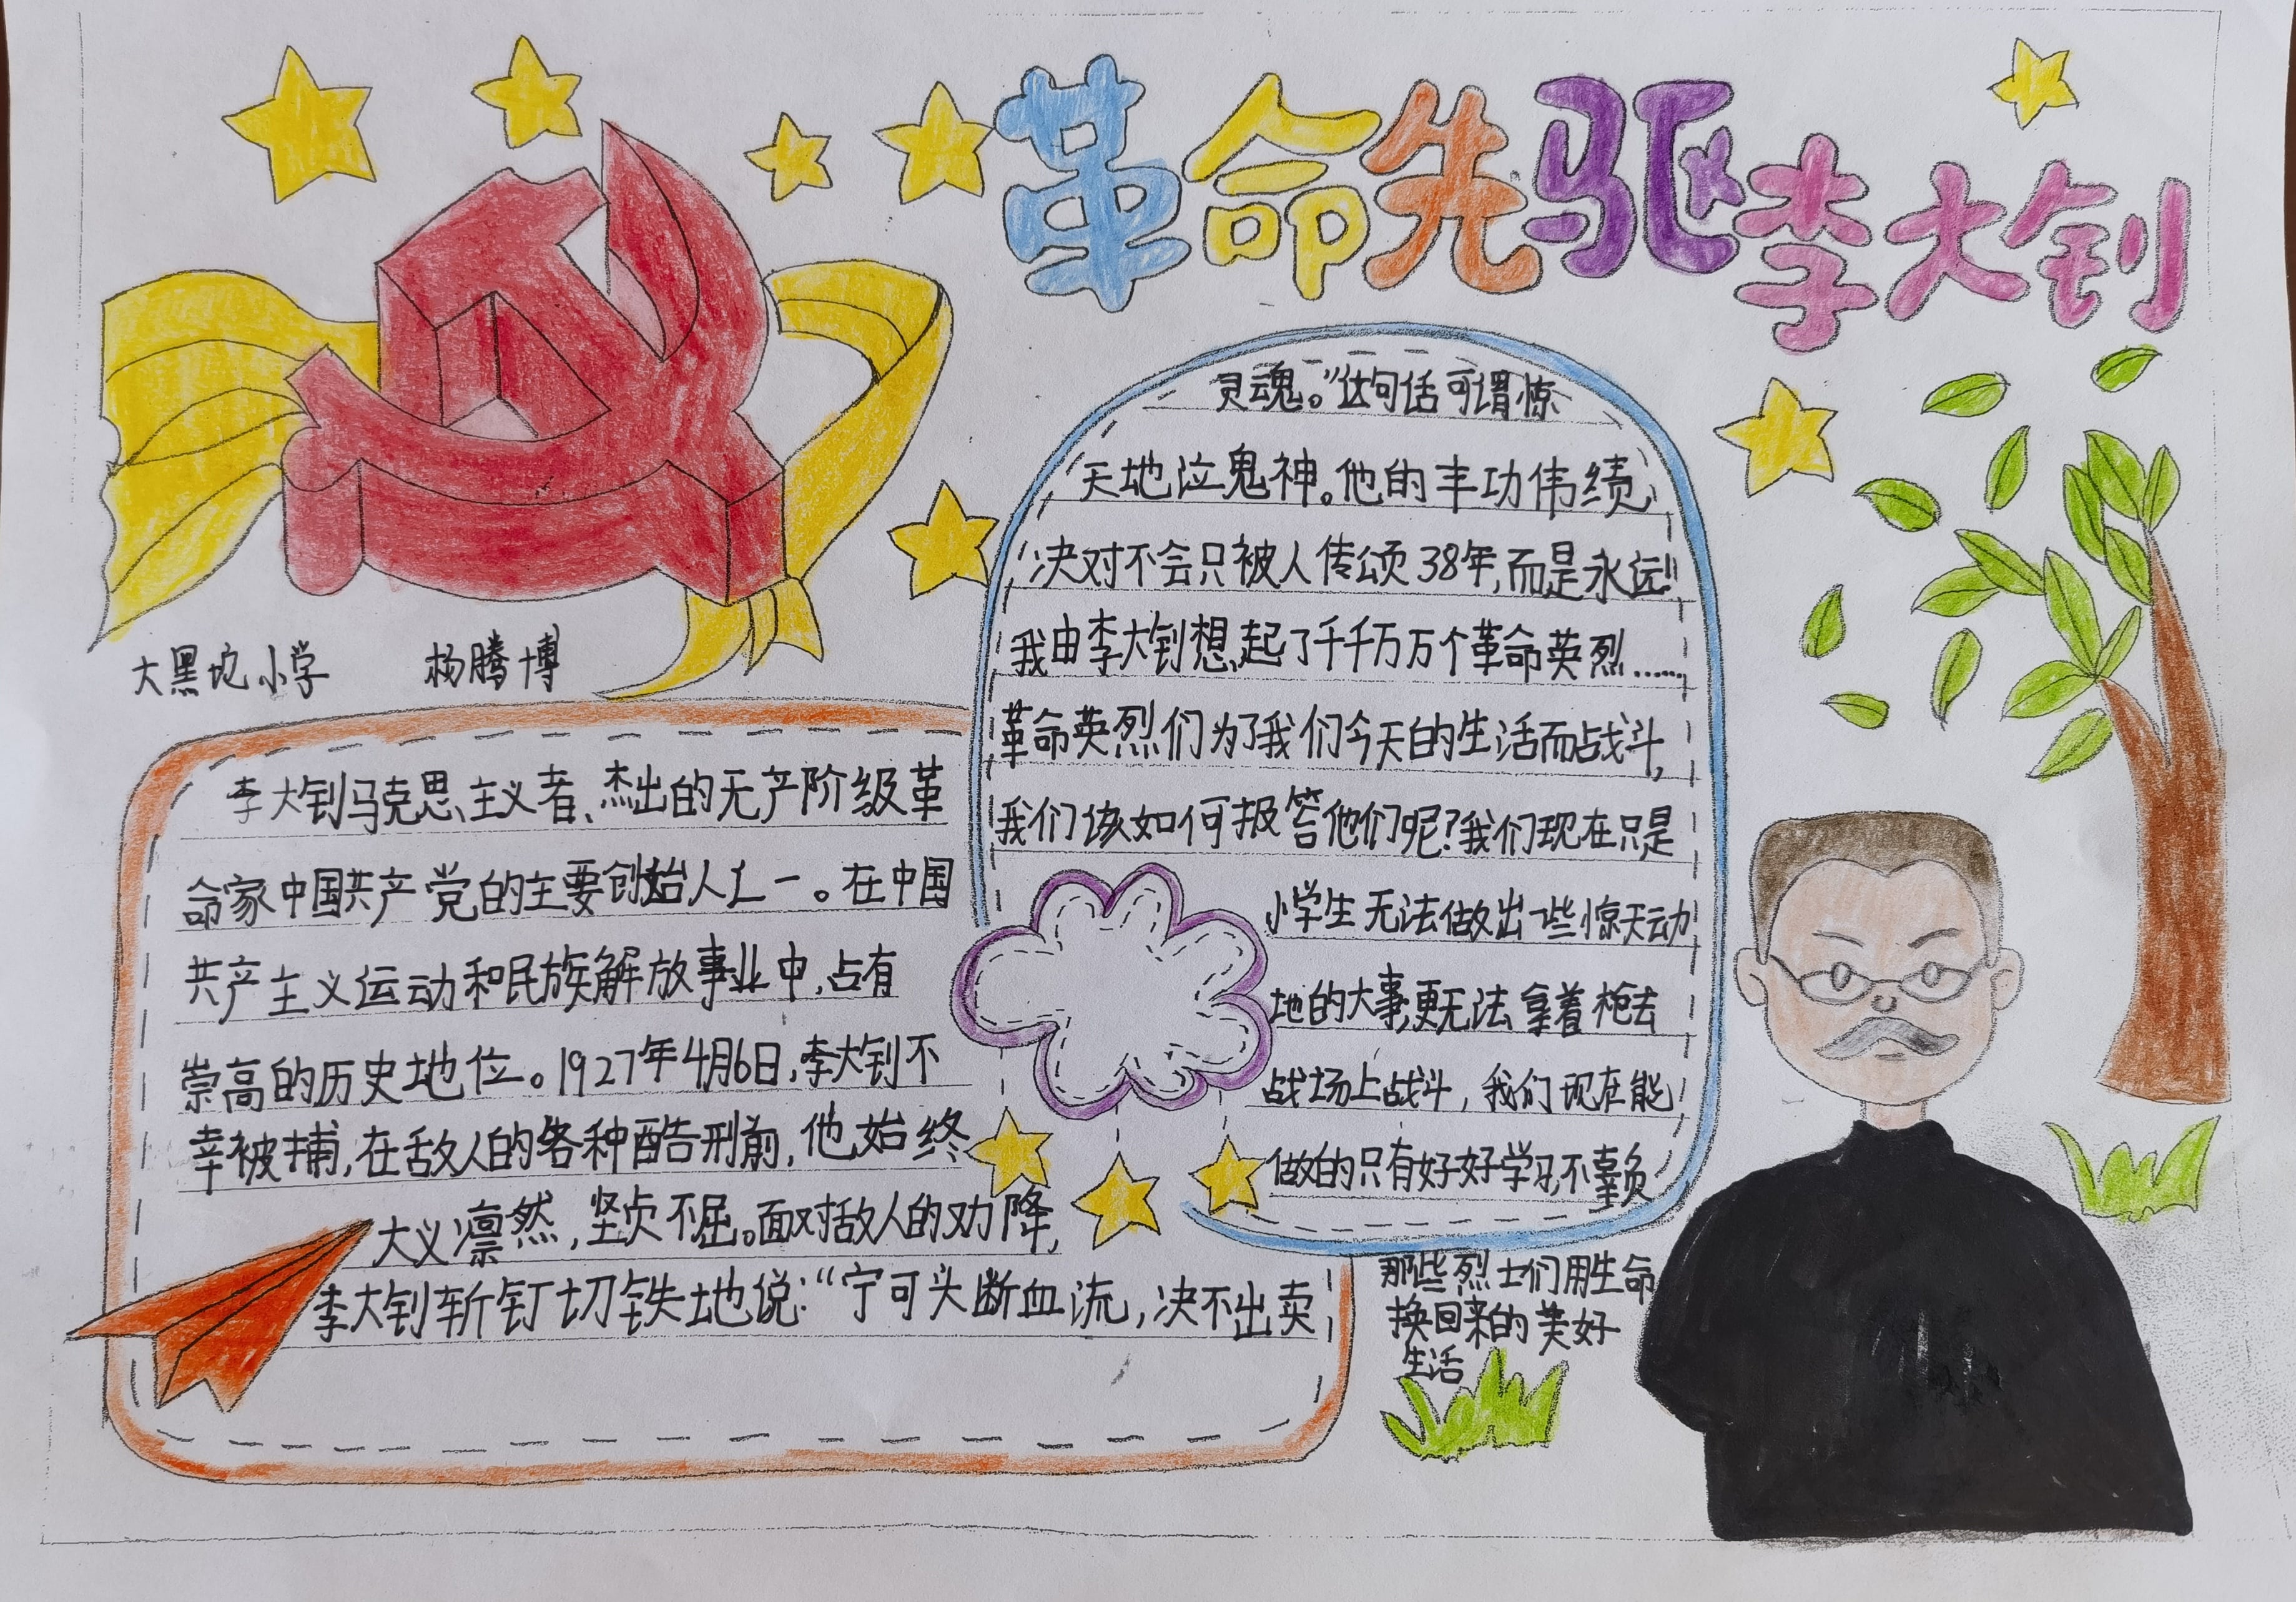 革命先驱李大钊
大黑坨小学 杨腾博
李大钊马克思主义者、杰出的无产阶级革
命家中国共产党的主要创始人之一。在中国
共产主义运动和民族解放事业中,占有
崇高的历史地位。1927年4月6日,李大钊不
幸被捕,在敌人的各种酷刑前,他始终
大义凛然,坚贞不屈。面对敌人的劝降,
李大钊斩钉切铁地说:“宁可头断血流,决不出卖
灵魂。”这句话可谓惊
天地泣鬼神。他的丰功伟绩
决对不会只被人传颂38年,而是永远!!
我由李大钊想起了千千万万个革命英烈……
革命英烈们为了我们今天的生活而战斗,
我们该如何报答他们呢?我们现在只是
小学生无法做出一些惊天动
地的大事,更无法拿着枪去
战场上战斗,我们现在能
做的只有好好学习,不辜负
那些烈士们用生命
换回来的美好
生活